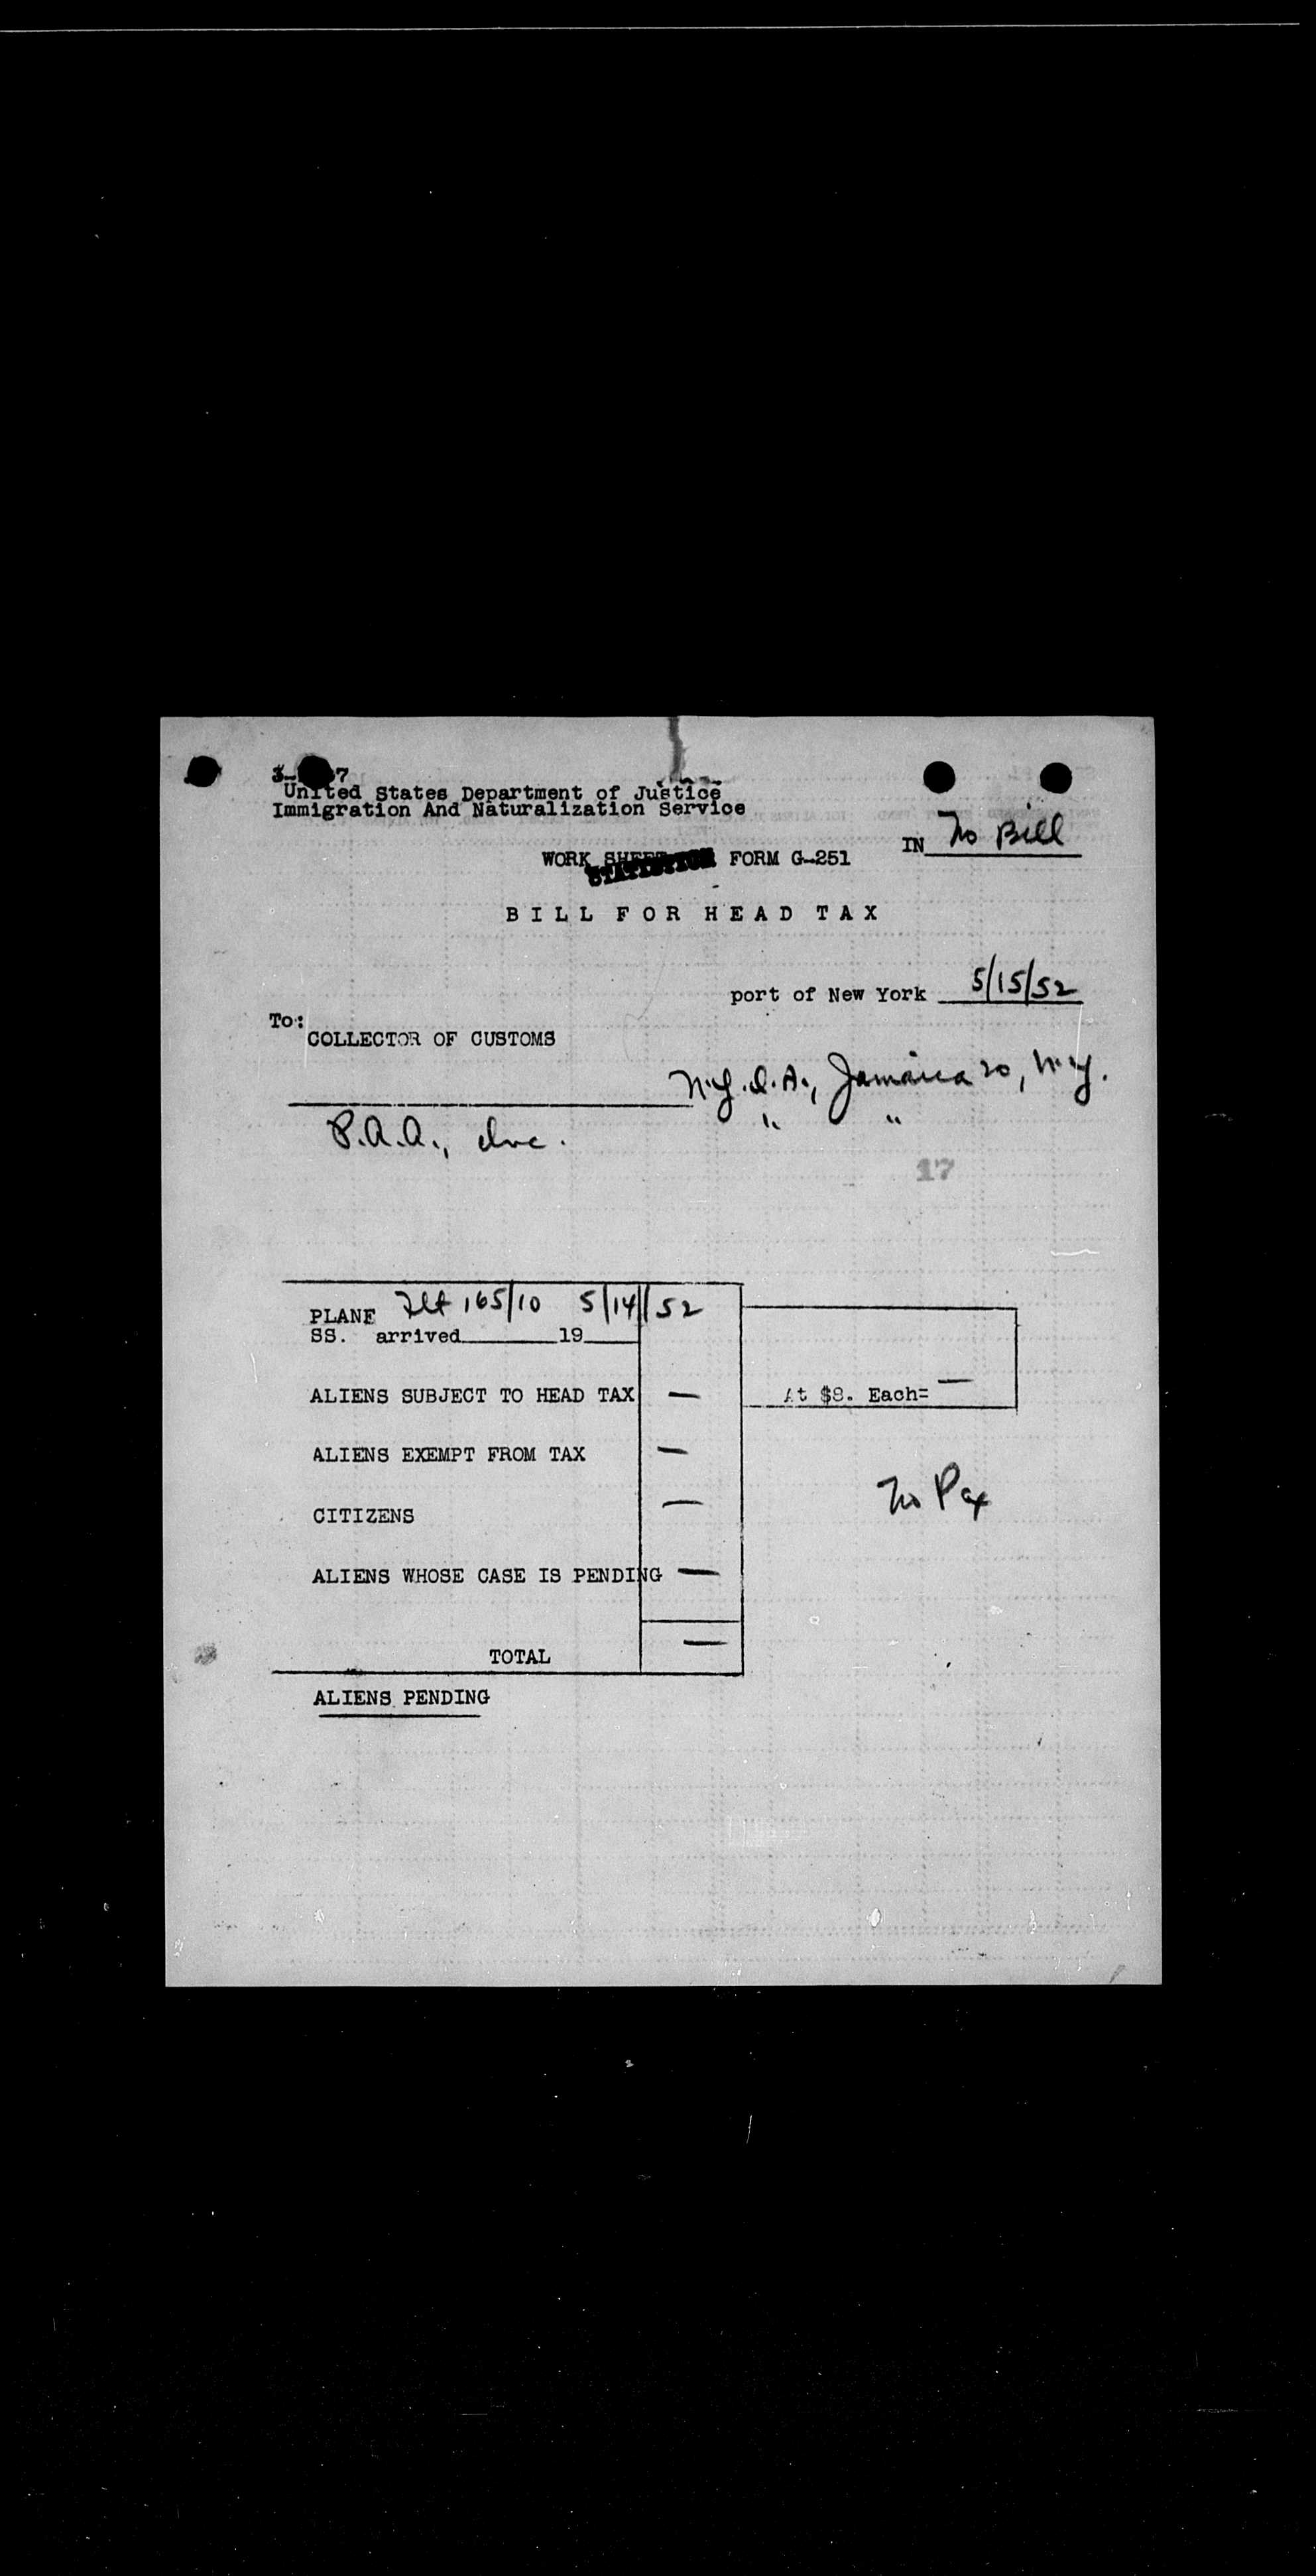 United States Department of Justice
Immigration And Naturalization Service
IN No Bill
WORK SHEET FORM G-251
BILL FOR HEAD TAX
port of New York 5/15/52
To:
COLLECTOR OF CUSTOMS
N.Y.I.A., Jamaica 20, N.Y.
P.A.A., Inc. " "
17
PLANE Flt 165/10 5/14/52
SS. arrived 19
ALIENS SUBJECT TO HEAD TAX — At $8. Each= —
ALIENS EXEMPT FROM TAX —
No Pax
CITIZENS —
ALIENS WHOSE CASE IS PENDING —
TOTAL —
ALIENS PENDING